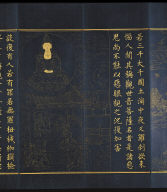 若三千大千國土滿中夜叉羅刹欲來
惱人聞其稱觀世音菩薩名者是諸惡
鬼尚不能以惡眼視之況復加害
設復有人若有罪若無罪杻械枷鎖檢